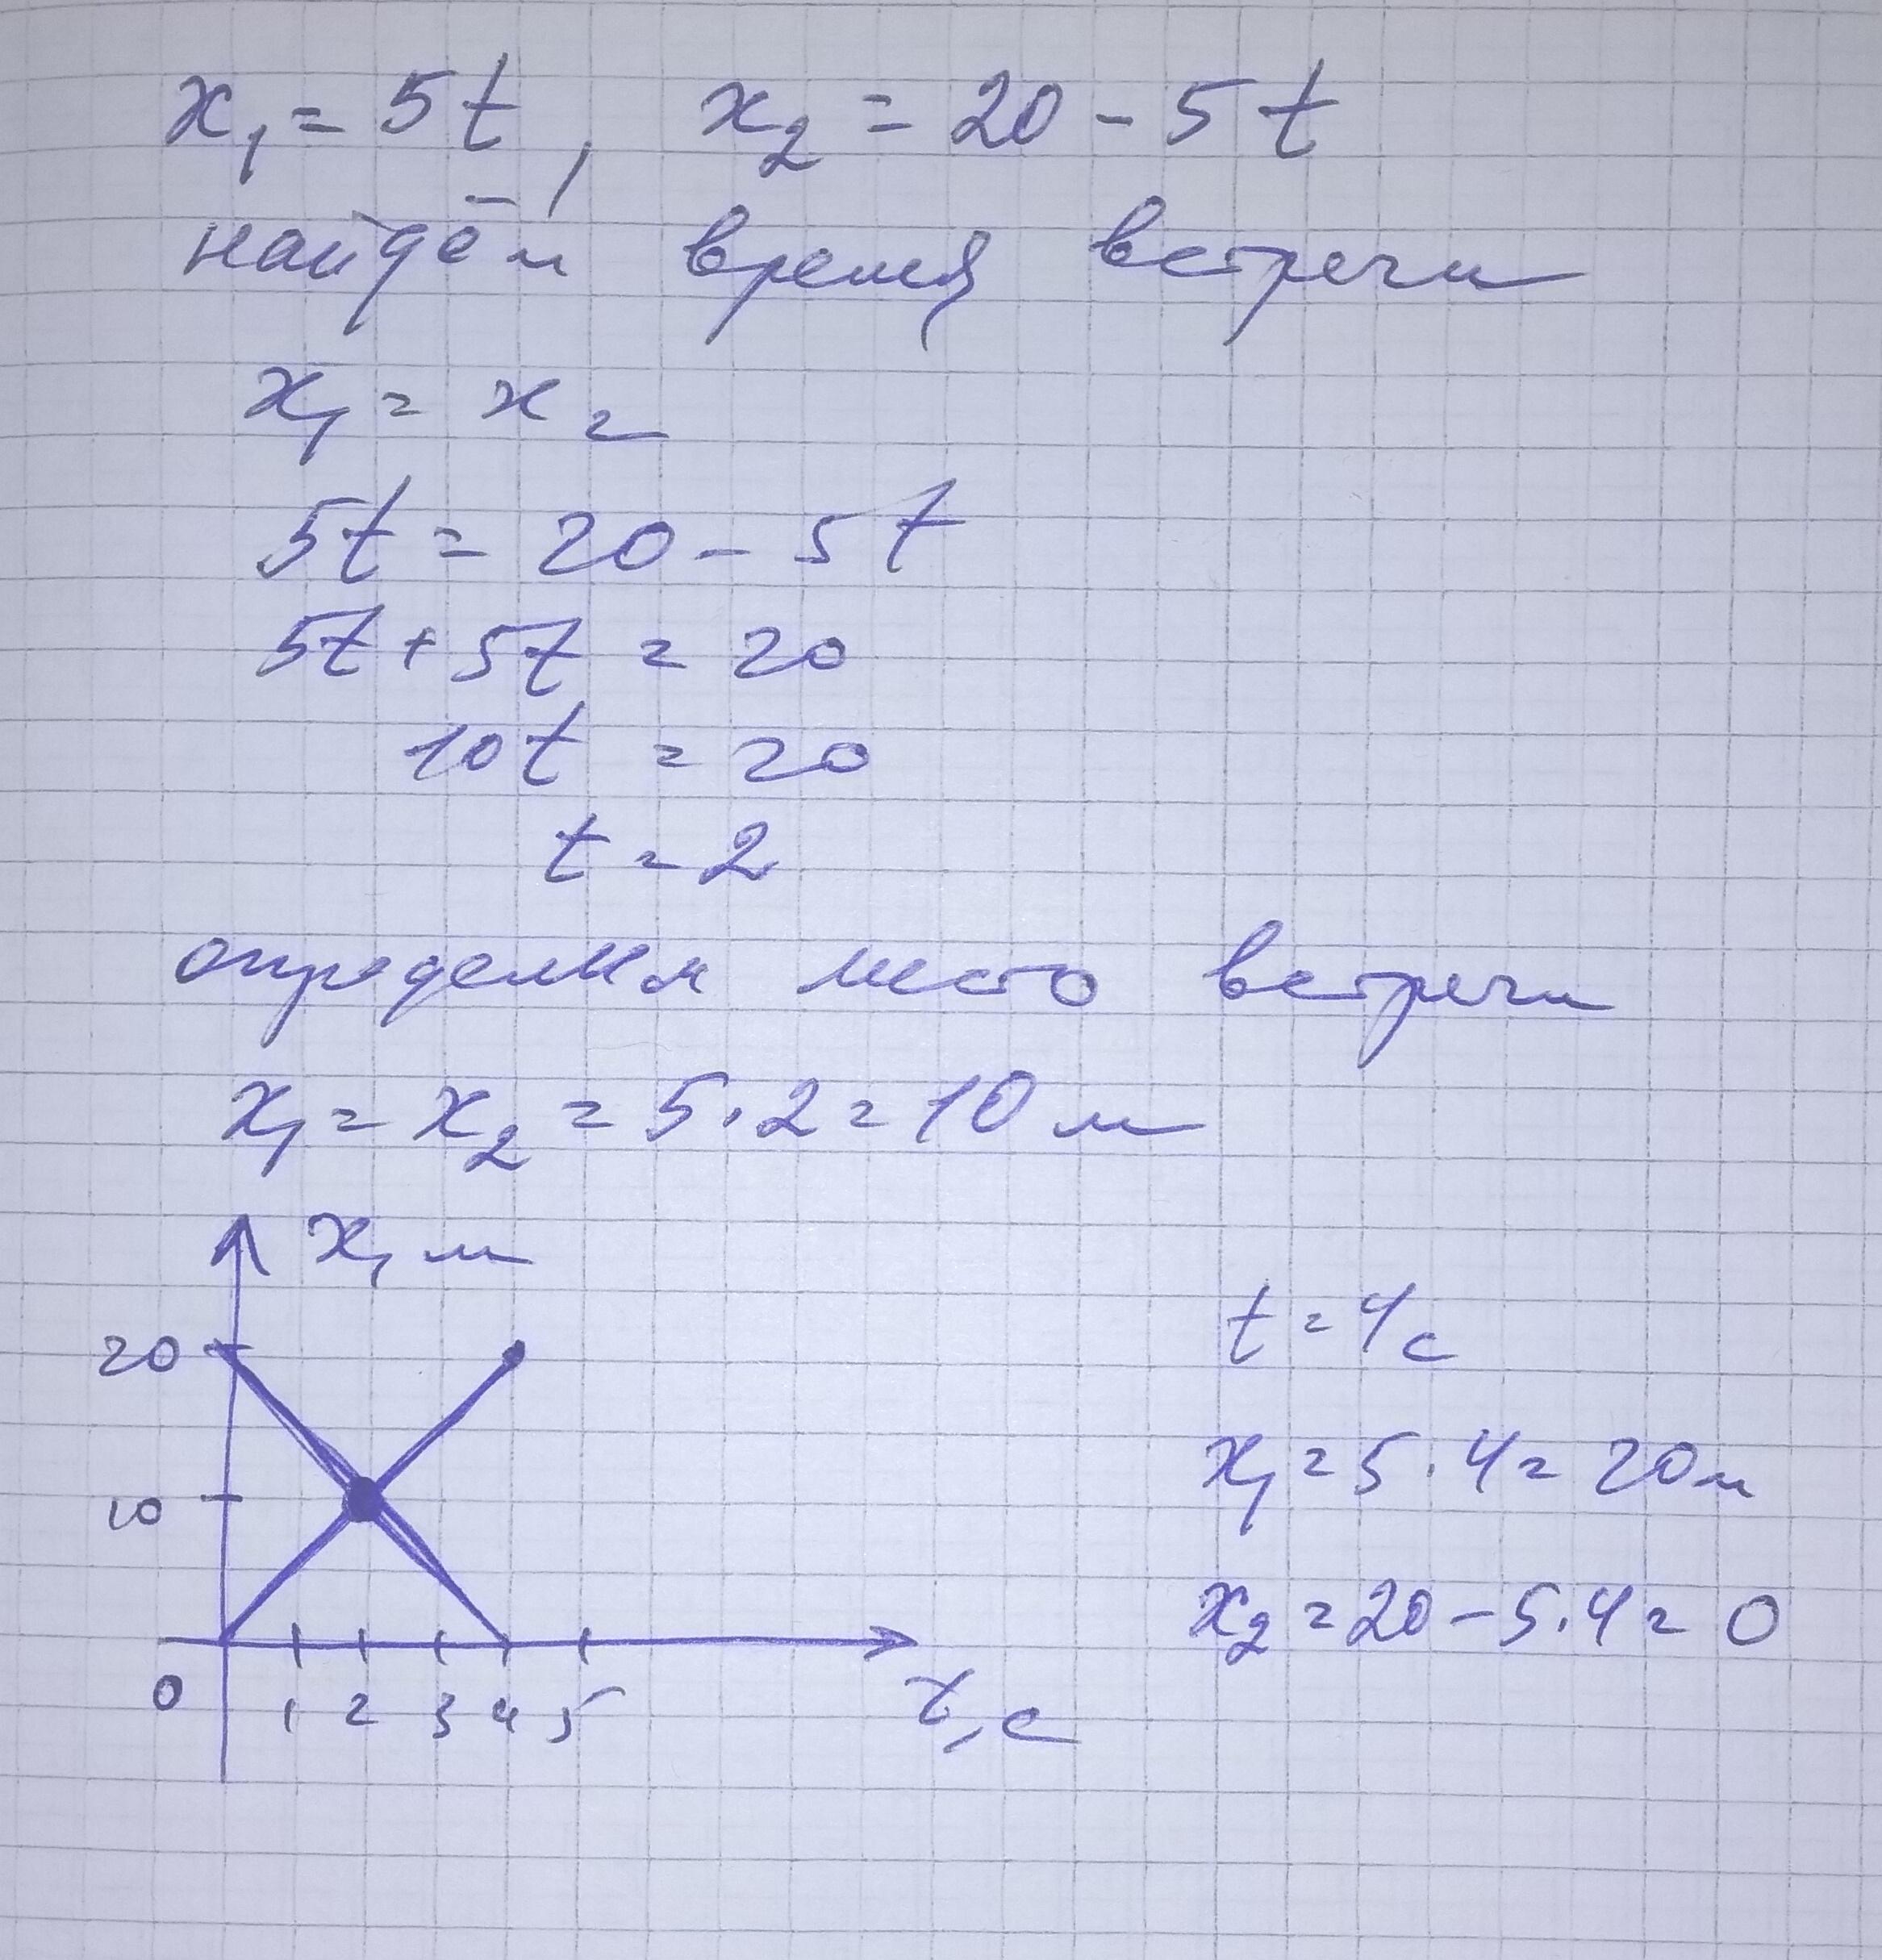 x₁ = 5t, x₂ = 20 - 5t
найдём время встречи
x₁ = x₂
5t = 20 - 5t
5t + 5t = 20
10t = 20
t = 2
определим место встречи
x₁ = x₂ = 5 · 2 = 10 м
x, м
20
10
0
1 2 3 4 5
t, c
t = 4c
x₁ = 5 · 4 = 20м
x₂ = 20 - 5 · 4 = 0